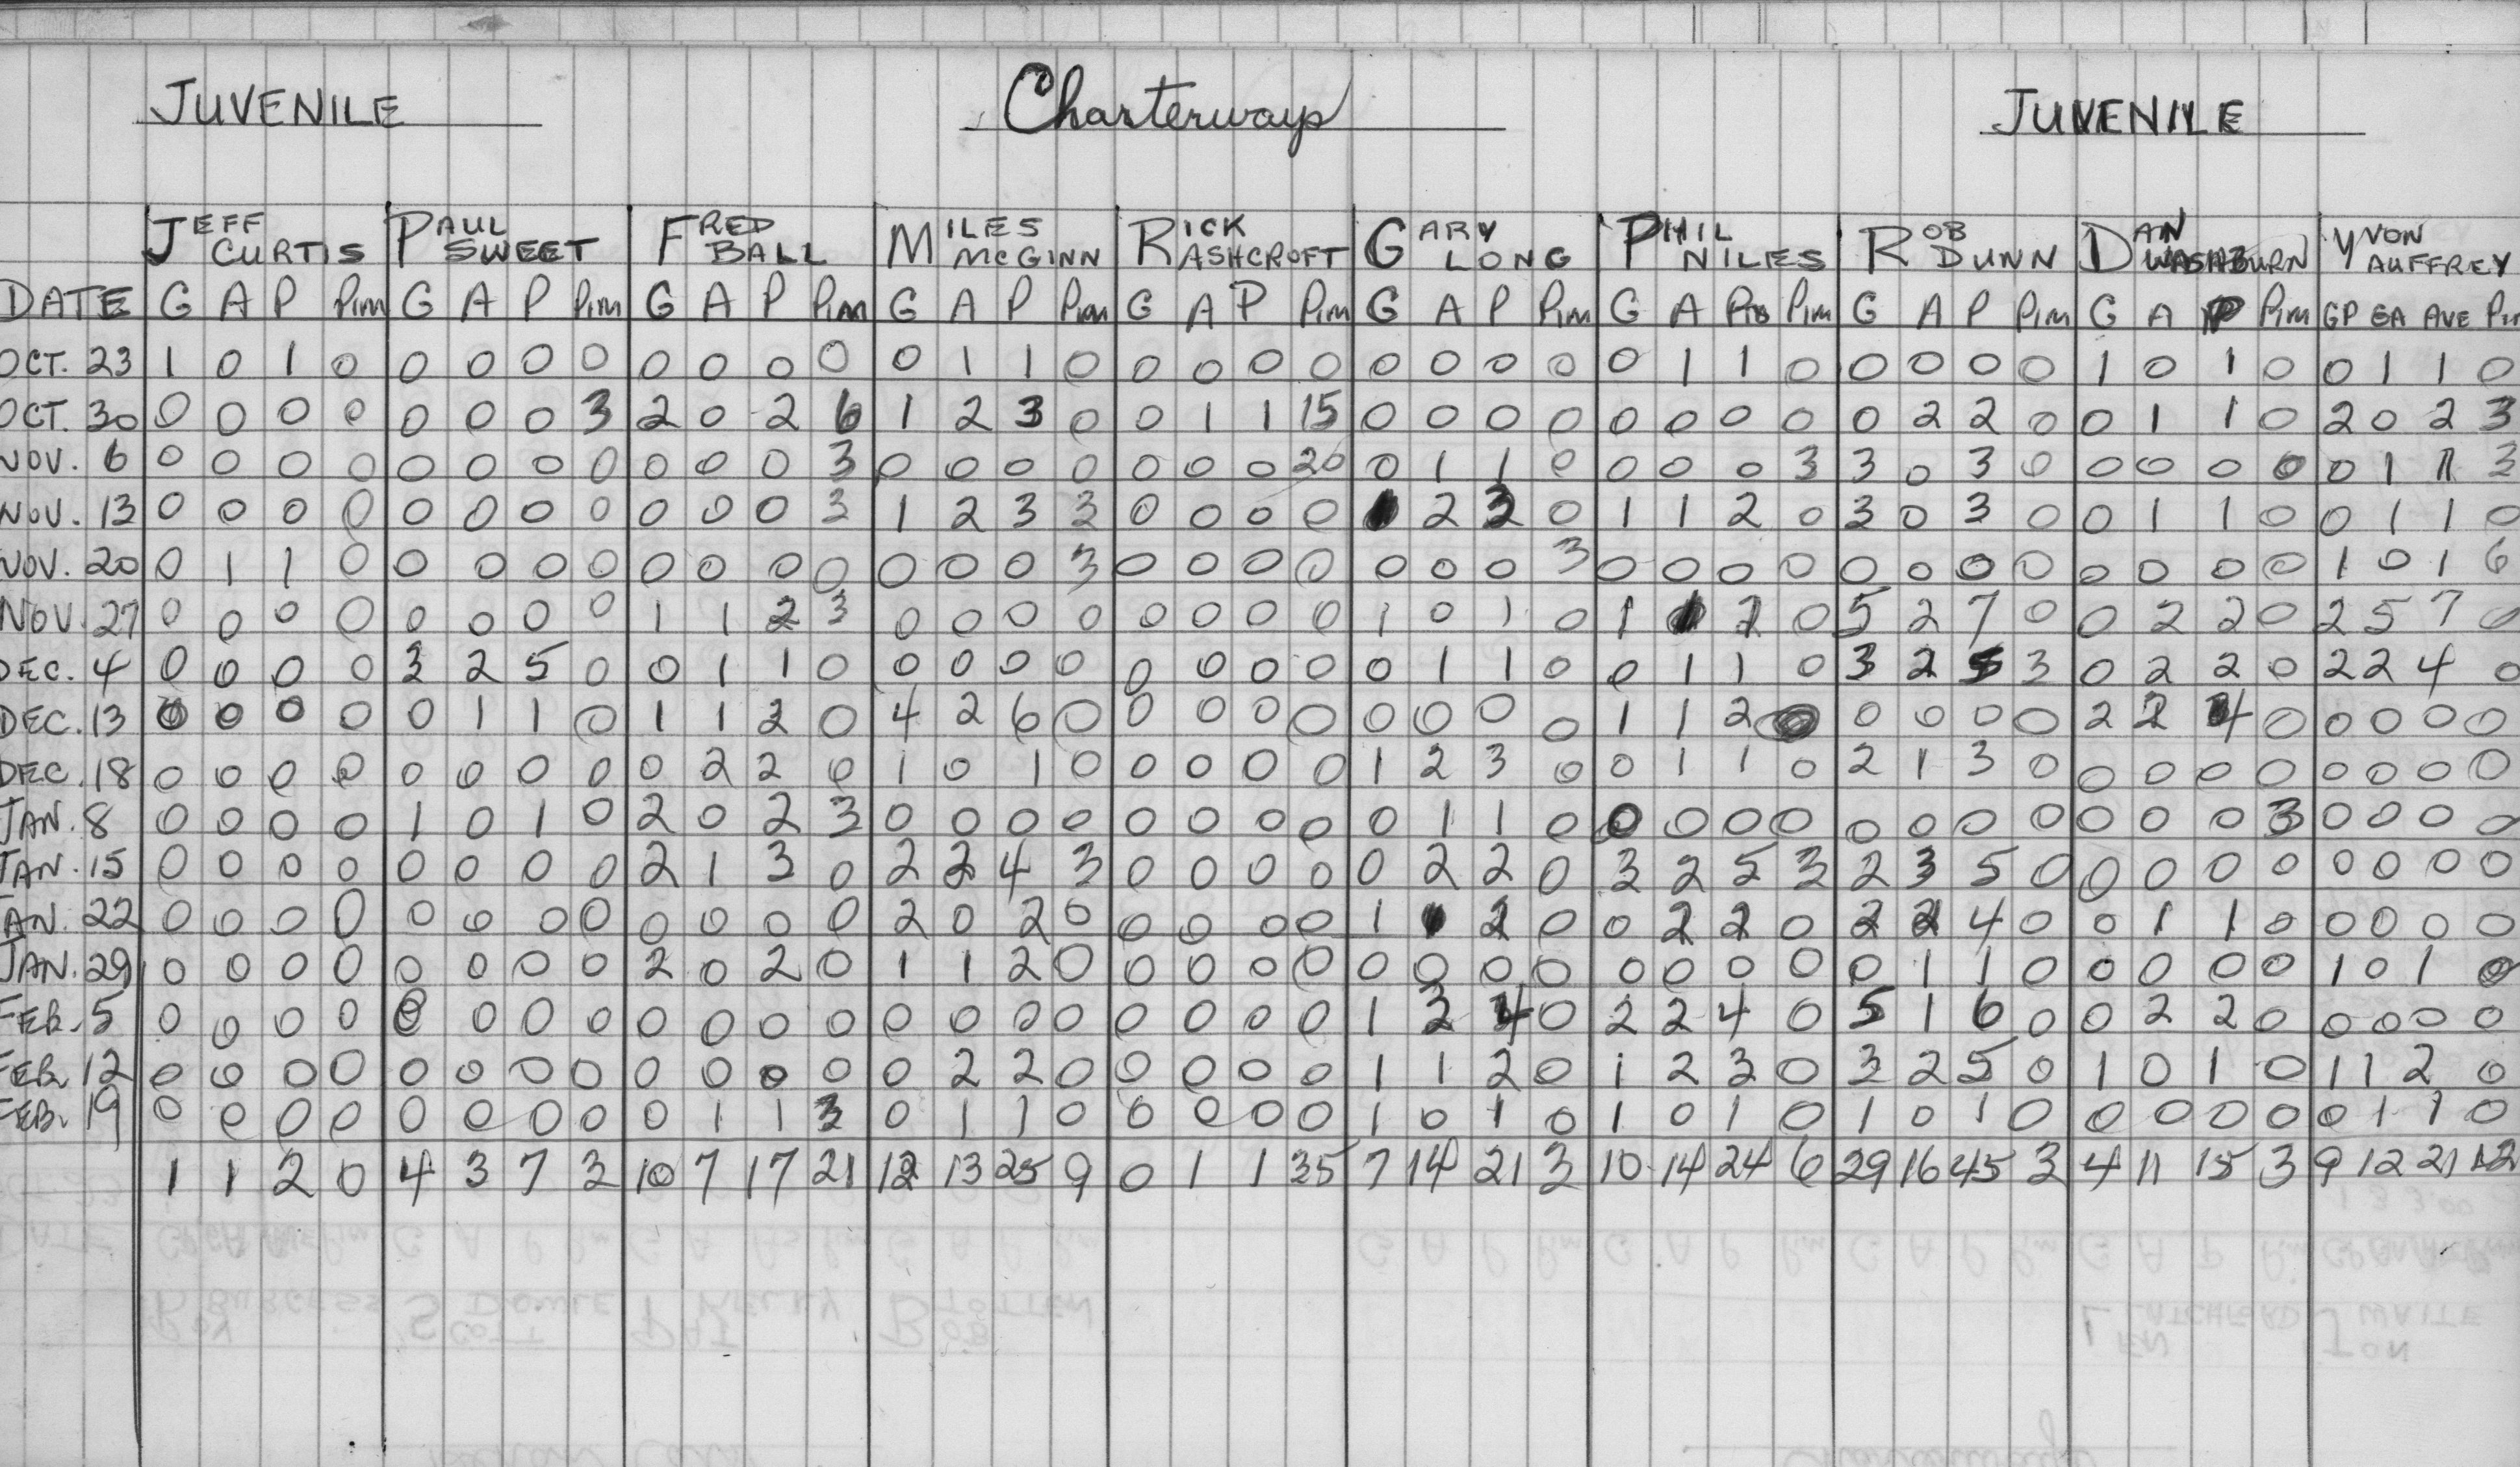 JUVENILE Charterways JUVENILE
JEFF CURTIS PAUL SWEET FRED BALL MILES McGINN RICK ASHCROFT GARY LONG PHIL NILES ROB DUNN DAN WASHBURN YVON AUFFREY
DATE G A P Pim G A P Pim G A P Pim G A P Pim G A P Pim G A P Pim G A Pts Pim G A P Pim G A P Pim GP GA AVE Pim
OCT. 23 1 0 1 0 0 0 0 0 0 0 0 0 0 1 1 0 0 0 0 0 0 0 0 0 0 1 1 0 0 0 0 0 1 0 1 0 0 1 1 0
OCT. 30 0 0 0 0 0 0 0 3 2 0 2 6 1 2 3 0 0 1 1 15 0 0 0 0 0 0 0 0 0 2 2 0 0 1 1 0 2 0 2 3
NOV. 6 0 0 0 0 0 0 0 0 0 0 0 3 0 0 0 0 0 0 0 20 0 1 1 0 0 0 0 3 3 0 3 0 0 0 0 0 0 1 1 3
NOV. 13 0 0 0 0 0 0 0 0 0 0 0 3 1 2 3 3 0 0 0 0 1 2 3 0 1 1 2 0 3 0 3 0 0 1 1 0 0 1 1 0
NOV. 20 0 1 1 0 0 0 0 0 0 0 0 0 0 0 0 3 0 0 0 0 0 0 0 3 0 0 0 0 0 0 0 0 0 0 0 0 1 0 1 6
NOV. 27 0 0 0 0 0 0 0 0 1 1 2 3 0 0 0 0 0 0 0 0 1 0 1 0 1 1 2 0 5 2 7 0 0 2 2 0 2 5 7 0
DEC. 4 0 0 0 0 3 2 5 0 0 1 1 0 0 0 0 0 0 0 0 0 0 1 1 0 0 1 1 0 3 2 5 3 0 2 2 0 2 2 4 0
DEC. 13 0 0 0 0 0 1 1 0 1 1 2 0 4 2 6 0 0 0 0 0 0 0 0 0 1 1 2 0 0 0 0 0 2 2 4 0 0 0 0 0
DEC. 18 0 0 0 0 0 0 0 0 0 2 2 0 1 0 1 0 0 0 0 0 1 2 3 0 0 1 1 0 2 1 3 0 0 0 0 0 0 0 0 0
JAN. 8 0 0 0 0 1 0 1 0 2 0 2 3 0 0 0 0 0 0 0 0 0 1 1 0 0 0 0 0 0 0 0 0 0 0 0 3 0 0 0 0
JAN. 15 0 0 0 0 0 0 0 0 2 1 3 0 2 2 4 3 0 0 0 0 0 2 2 0 3 2 5 3 2 3 5 0 0 0 0 0 0 0 0 0
JAN. 22 0 0 0 0 0 0 0 0 0 0 0 0 2 0 2 0 0 0 0 0 1 1 2 0 0 2 2 0 2 2 4 0 0 1 1 0 0 0 0 0
JAN. 29 0 0 0 0 0 0 0 0 2 0 2 0 1 1 2 0 0 0 0 0 0 0 0 0 0 0 0 0 0 1 1 0 0 0 0 0 1 0 1 0
FEB. 5 0 0 0 0 0 0 0 0 0 0 0 0 0 0 0 0 0 0 0 0 1 3 4 0 2 2 4 0 5 1 6 0 0 2 2 0 0 0 0 0
FEB. 12 0 0 0 0 0 0 0 0 0 0 0 0 0 2 2 0 0 0 0 0 1 1 2 0 1 2 3 0 3 2 5 0 1 0 1 0 1 1 2 0
FEB. 19 0 0 0 0 0 0 0 0 0 1 1 3 0 1 1 0 0 0 0 0 1 0 1 0 1 0 1 0 1 0 1 0 0 0 0 0 0 1 1 0
1 1 2 0 4 3 7 3 10 7 17 21 12 13 25 9 0 1 1 35 7 14 21 3 10 14 24 6 29 16 45 3 4 11 15 3 9 12 21 12